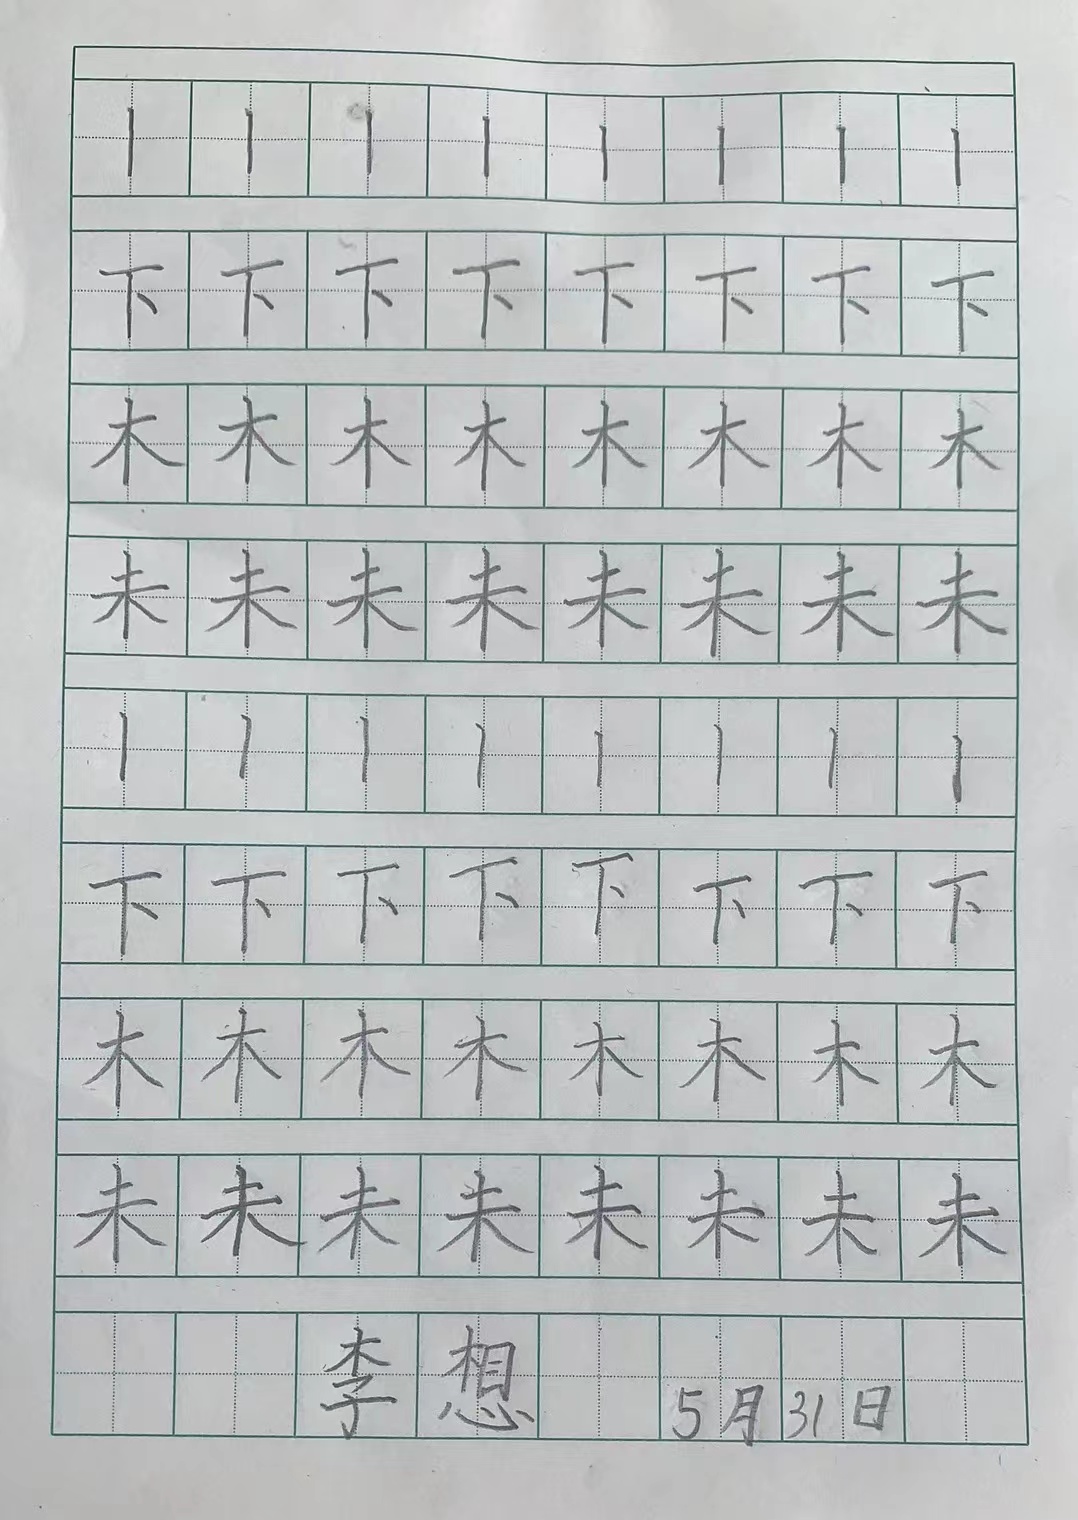 丨丨丨丨丨丨丨丨
下下下下下下下下
木木木木木木木木
未未未未未未未未
丨丨丨丨丨丨丨丨
下下下下下下下下
木木木木木木木木
未未未未未未未未
李想 5月31日